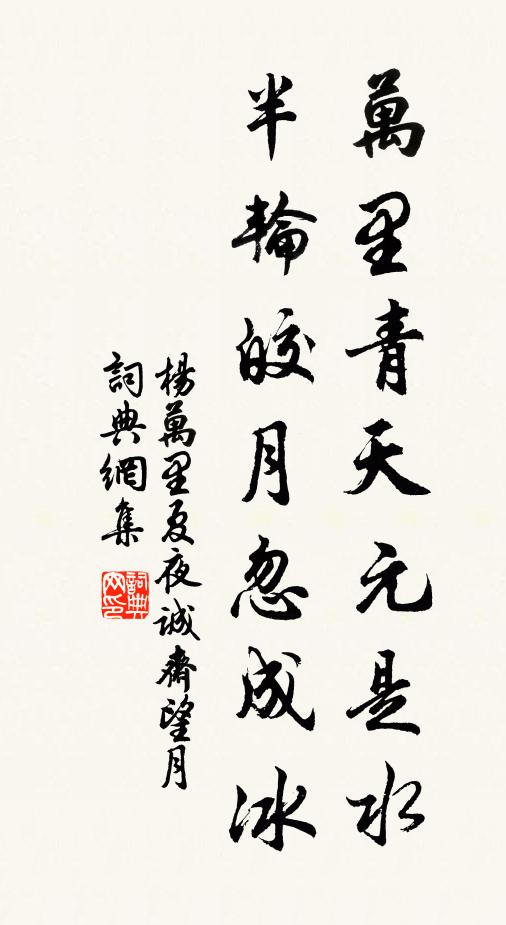 萬里青天元是水
半輪皎月忽成冰
楊萬里夏夜誠齋望月
詞典網集
詞典网印